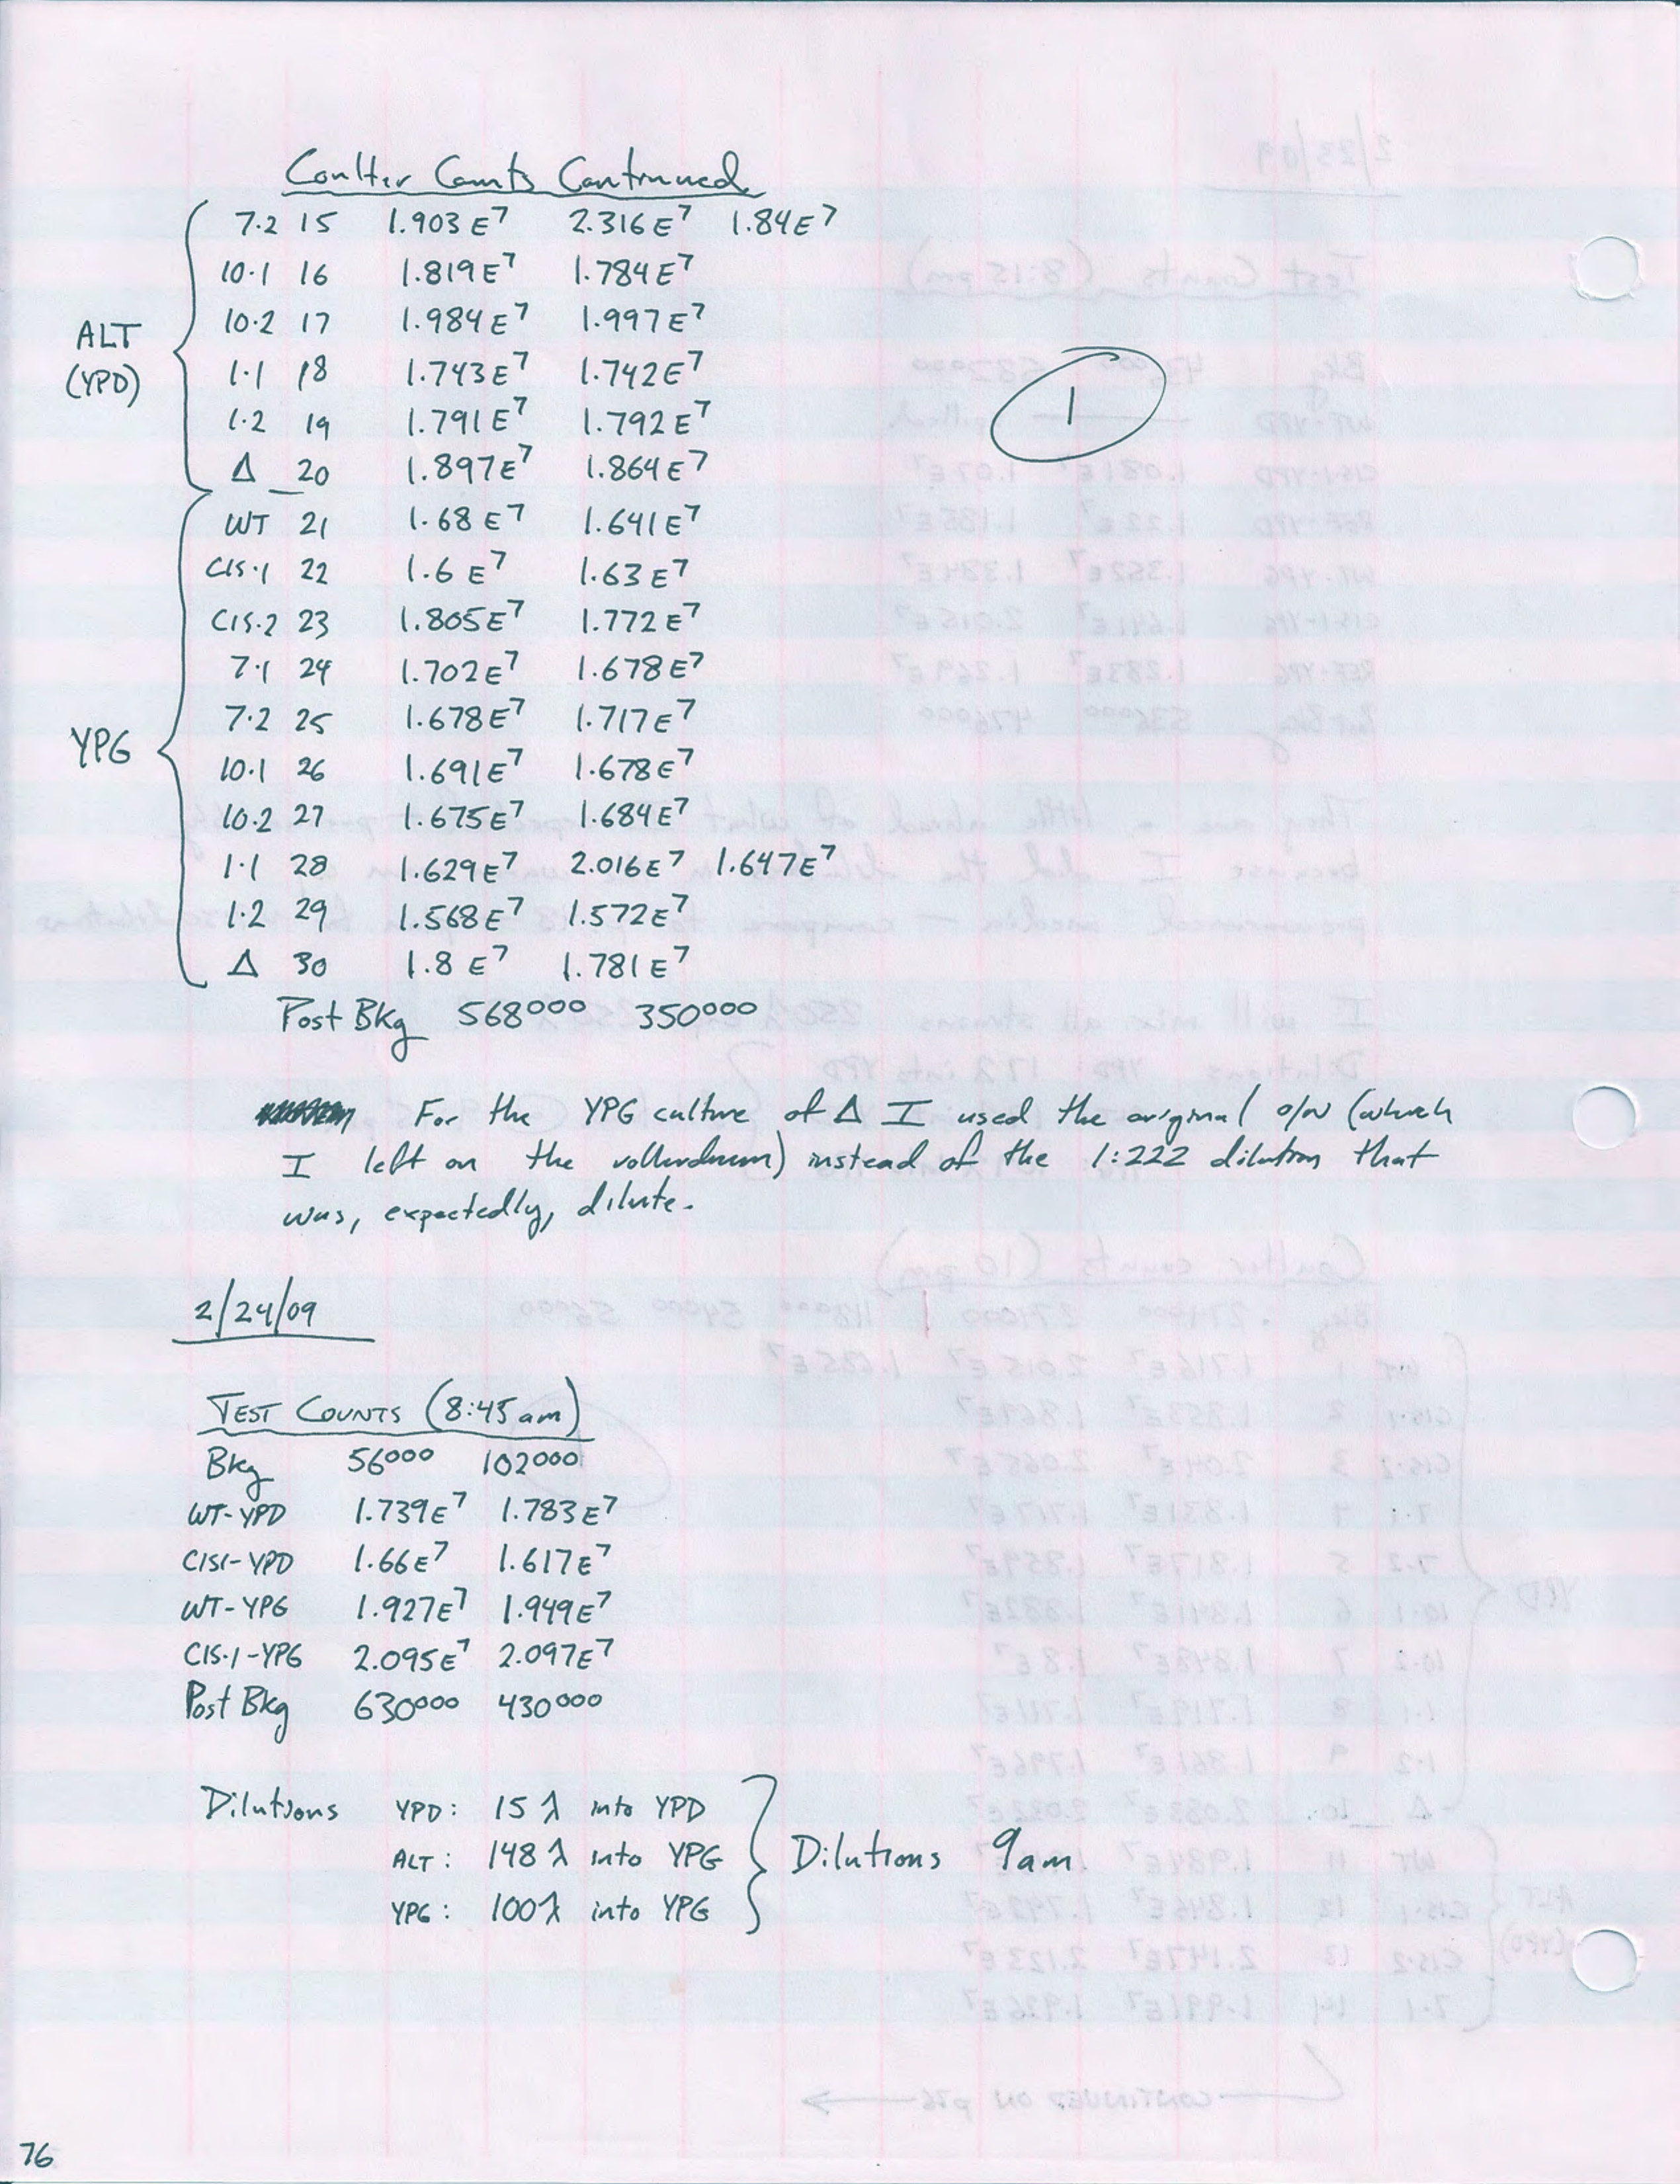 Coulter Counts Continued
7.2 15 1.903E7 2.316E7 1.84E7
10.1 16 1.819E7 1.784E7
10.2 17 1.984E7 1.997E7
ALT
(YPD)
1.1 18 1.743E7 1.742E7
1.2 19 1.791E7 1.792E7
Δ 20 1.897E7 1.864E7
1
WT 21 1.68E7 1.641E7
CIS.1 22 1.6E7 1.63E7
CIS.2 23 1.805E7 1.772E7
7.1 24 1.702E7 1.678E7
7.2 25 1.678E7 1.717E7
YPG
10.1 26 1.691E7 1.678E7
10.2 27 1.675E7 1.684E7
1.1 28 1.629E7 2.016E7 1.647E7
1.2 29 1.568E7 1.572E7
Δ 30 1.8E7 1.781E7
Post Bkg 568000 350000
For the YPG culture of Δ I used the original o/n (which
I left on the rollerdrum) instead of the 1:222 dilution that
was, expectedly, dilute.
2/24/09
TEST COUNTS (8:45am)
Bkg 56000 102000
WT-YPD 1.739E7 1.783E7
CIS1-YPD 1.66E7 1.617E7
WT-YPG 1.927E7 1.949E7
CIS.1-YPG 2.095E7 2.097E7
Post Bkg 630000 430000
Dilutions YPD: 15 λ into YPD
ALT: 148 λ into YPG
YPG: 100 λ into YPG
Dilutions 9am
76